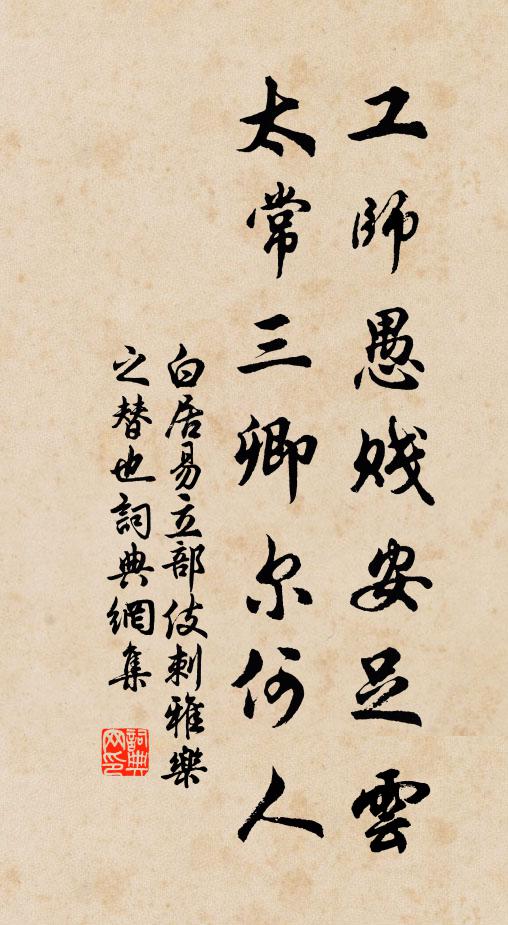 工師愚賤安足雲
太常三卿尔何人
白居易立部伎刺雅樂
之替也詞典網集
詞典
网印